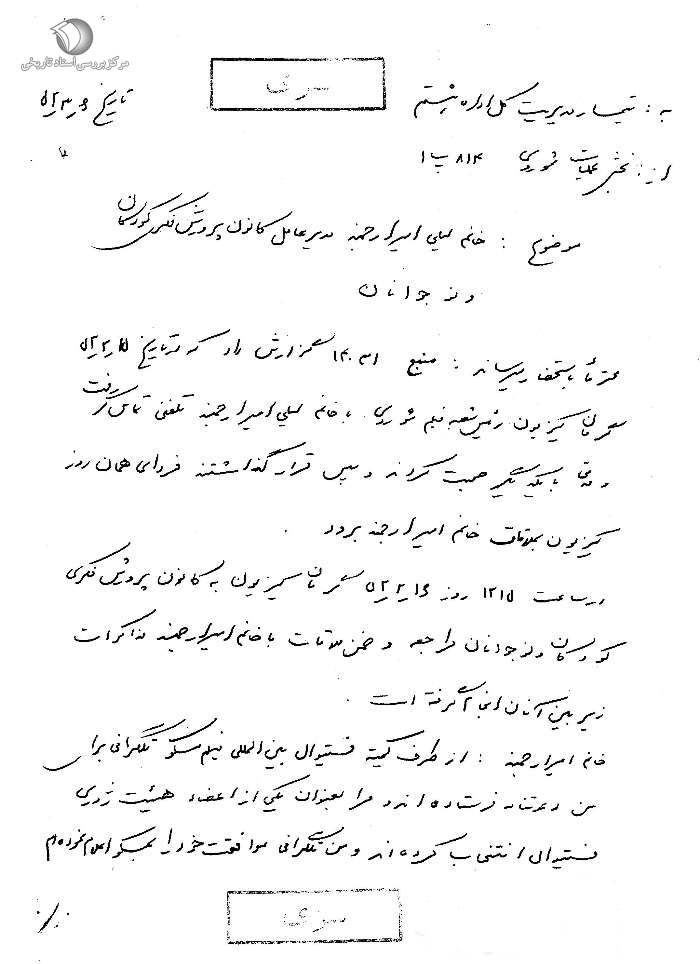 مرکز بررسی اسناد تاریخی
سری
به : تیمسار مدیریت کل اداره هشتم
تاریخ ۵۲٫۳٫۶
از : بخش عملیات شوروی ۸۱۴ پ ۱
موضوع : خانم لیلی امیرارجمند مدیر عامل کانون پرورش فکری کودکان
و نوجوانان
محترماً باستحضار میرساند : منبع ۱۴۰۳۱ گزارش داد که در تاریخ ۵۲٫۲٫۱۵
رئیس شعبه فیلم شوروی با خانم لیلی امیرارجمند تلفنی تماس گرفت
و مدتی با یکدیگر صحبت کردند و سپس قرار گذاشتند فردای همان روز
بملاقات خانم امیرارجمند برود .
در ساعت ۱۲۱۵ روز ۵۲٫۲٫۱۶ به کانون پرورش فکری
کودکان و نوجوانان مراجعه و ضمن ملاقات با خانم امیرارجمند مذاکرات
زیر بین آنان انجام گرفته است .
خانم امیرارجمند : از طرف کمیته فستیوال بین المللی فیلم مسکو تلگرافی برای
من دعوتنامه فرستاده اند و مرا بعنوان یکی از اعضاء هیئت ژوری
فستیوال انتخاب کرده اند و من تلگرافی موافقت خود را بمسکو اعلام نموده ام
سری